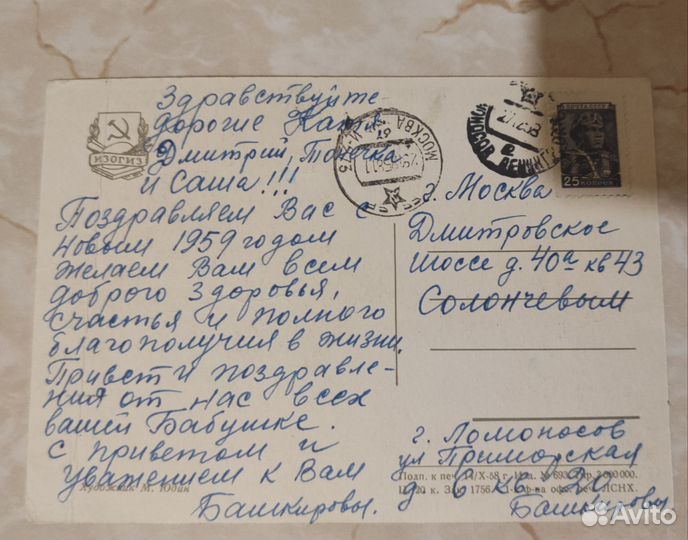 Здравствуйте
дорогие Катя
Дмитрий, Танечка
и Саша!!!
Поздравляем Вас с
новым 1959 годом
желаем Вам всем
доброго здоровья,
счастья и полного
благополучия в жизни.
Привет и поздравле-
ния от нас всех
вашей Бабушке.
с приветом и
уважением к Вам
Башкировы.
Художник М. Юдин
ИЗОГИЗ
МОСКВА
ПОЧТА СССР
25 КОПЕЕК
г. Москва
Дмитровское
шоссе д. 40а кв 43
Солончевым
г. Ломоносов
ул Приморская
д 6 кв 20
Башкировы
Подп. к печ. 14/X-58 г. Изд. № 693.
000.
Зак. 1756.
ЛСНХ.
Avito